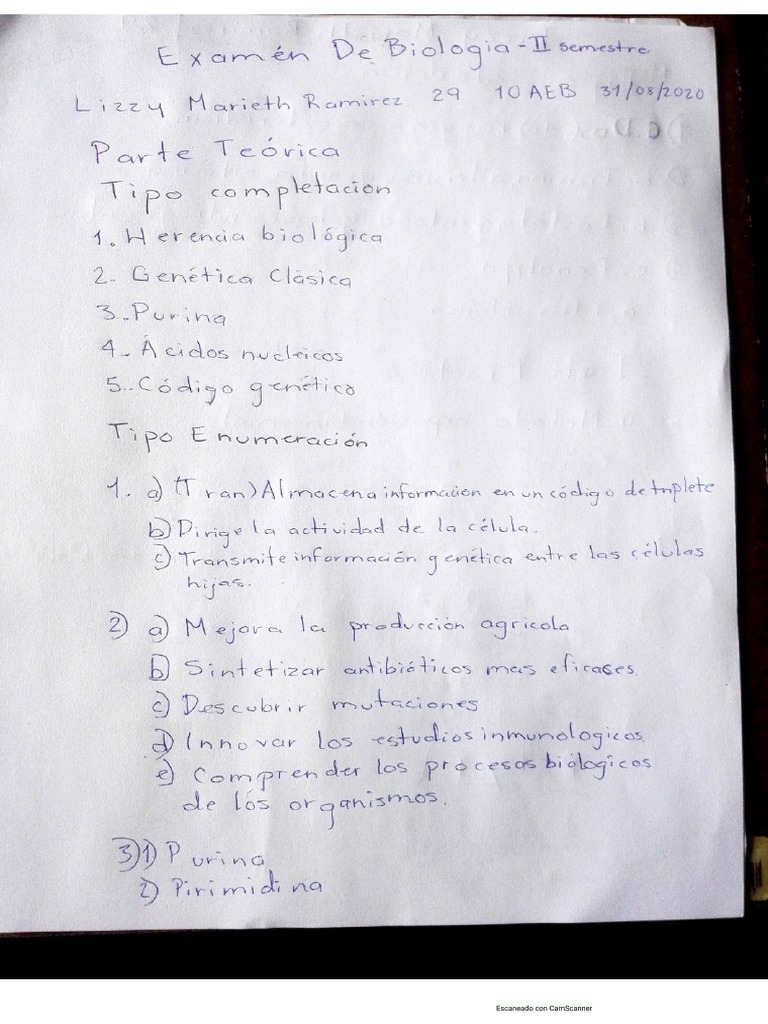 Examén De Biologia - II semestre
Lizzy Marieth Ramirez 29 10 AEB 31/08/2020
Parte Teórica
Tipo completación
1. Herencia biológica
2- Genética Clásica
3.-Purina
4- Ácidos nucleicos
5.-Código genético
Tipo Enumeración
1. a) (Tran) Almacena información en un código de triplete
b) Dirige la actividad de la célula.
c) Transmite información genética entre las células
hijas.
2) a) Mejora la producción agricola
b) Sintetizar antibióticos mas eficases.
c) Descubrir mutaciones
d) Innovar los estudios inmunologicos.
e) Comprender los procesos biólogicos
de los organismos.
3) 1) Purina
2) Pirimidina
Escaneado con CamScanner